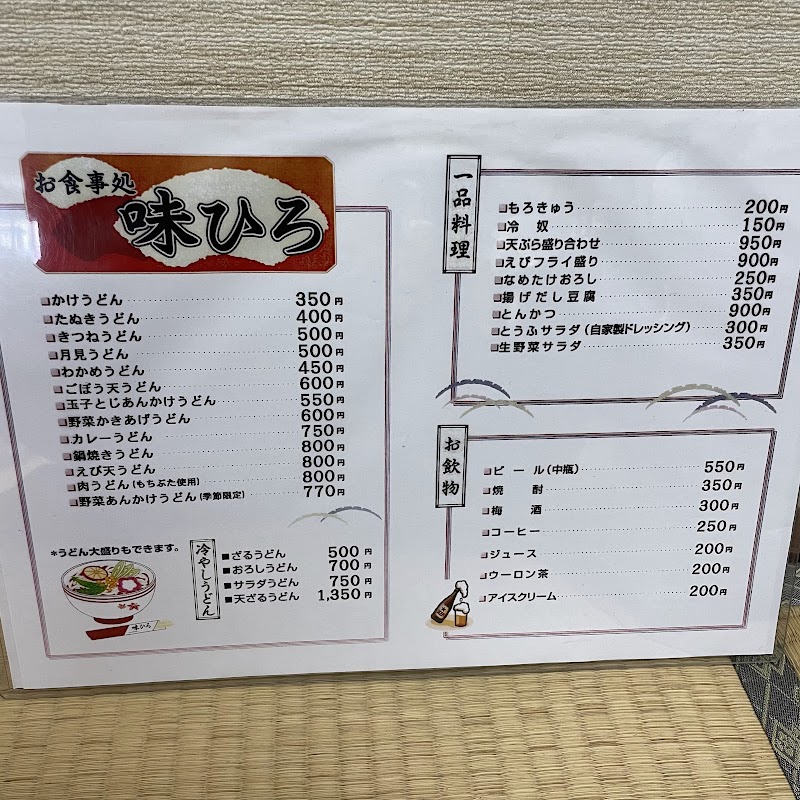 お食事処
味ひろ
かけうどん 350円
たぬきうどん 400円
きつねうどん 500円
月見うどん 500円
わかめうどん 450円
ごぼう天うどん 600円
玉子とじあんかけうどん 550円
野菜かきあげうどん 600円
カレーうどん 750円
鍋焼きうどん 800円
えび天うどん 800円
肉うどん(もちぶた使用) 800円
野菜あんかけうどん(季節限定) 770円
*うどん大盛りもできます。
味ひろ
冷やしうどん
ざるうどん 500円
おろしうどん 700円
サラダうどん 750円
天ざるうどん 1,350円
一品料理
もろきゅう 200円
冷 奴 150円
天ぷら盛り合わせ 950円
えびフライ盛り 900円
なめたけおろし 250円
揚げだし豆腐 350円
とんかつ 900円
とうふサラダ(自家製ドレッシング) 300円
生野菜サラダ 350円
お飲物
ビール(中瓶) 550円
焼 酎 350円
梅 酒 300円
コーヒー 250円
ジュース 200円
ウーロン茶 200円
アイスクリーム 200円